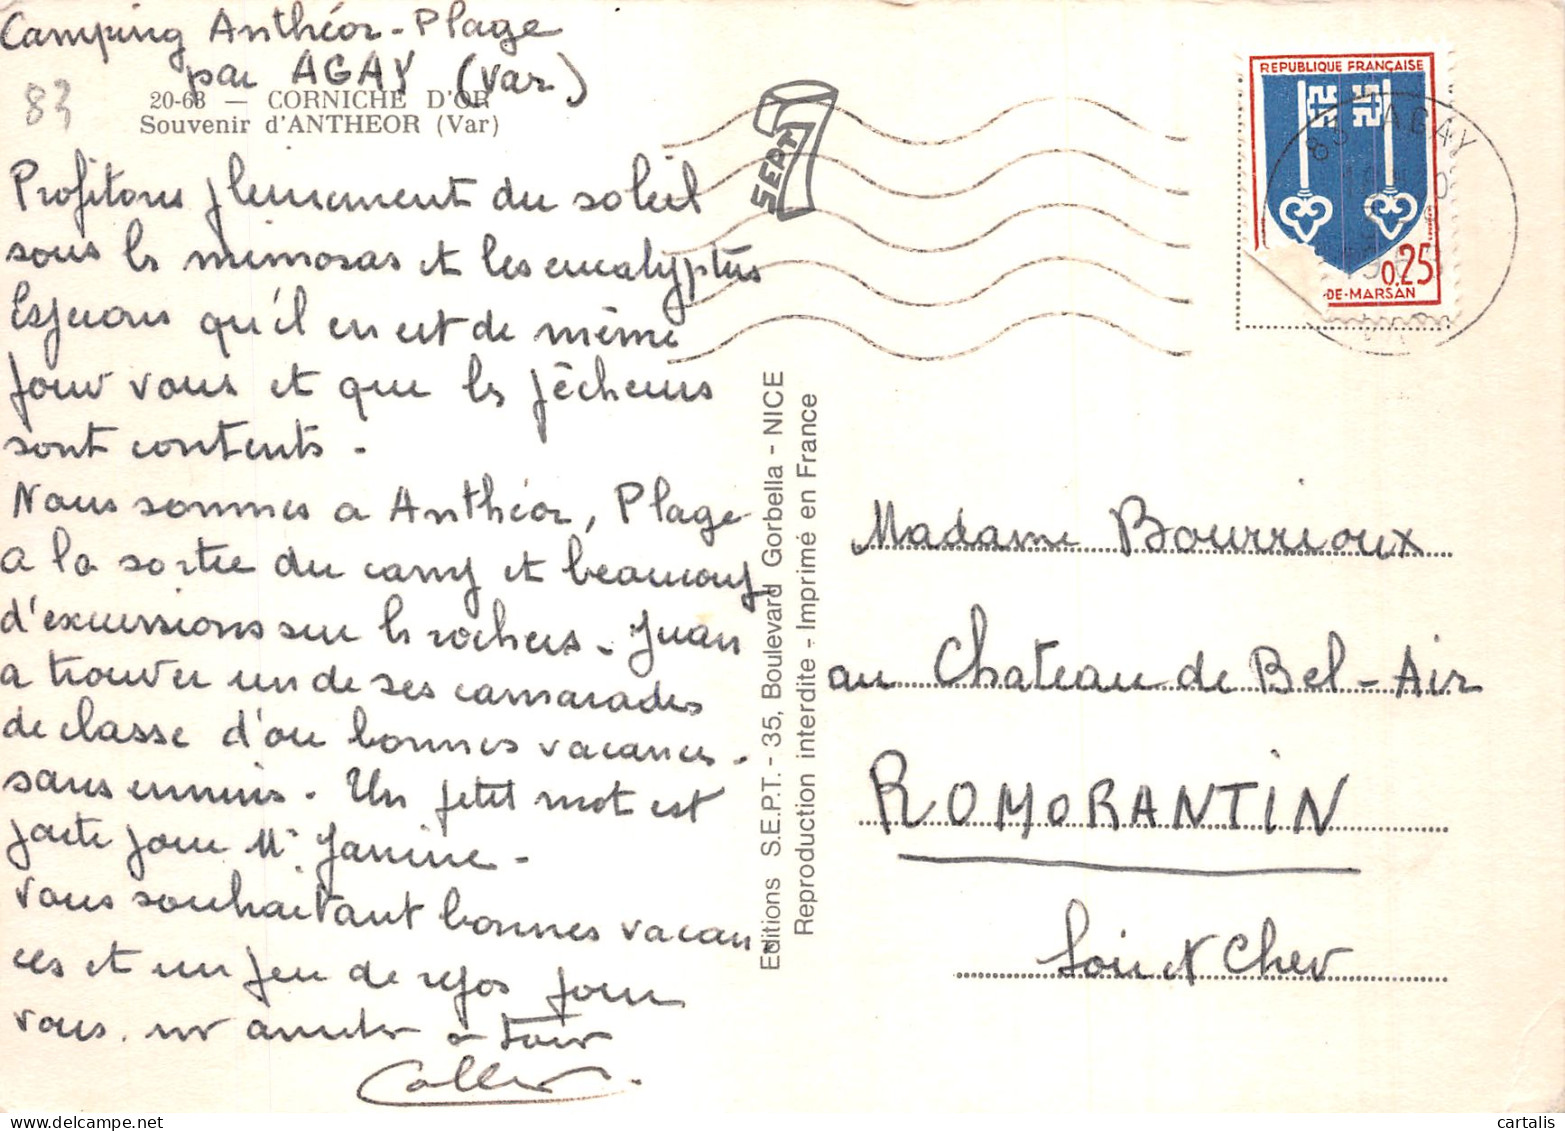 Camping Anthéor-Plage
par AGAY (Var)
83
20-68 — CORNICHE D'OR
Souvenir d'ANTHEOR (Var)
Profitons pleinement du soleil
sous les mimosas et les eucalyptus
Espérons qu'il en est de même
pour vous et que les pêcheurs
sont contents -
Nous sommes a Anthéor, Plage
a la sortie du camp et beaucoup
d'excursions sur les rochers - Juan
a trouver un de ses camarades
de classe d'ou bonnes vacances -
sans ennuis - Un petit mot est
parti pour Mr Janine -
vous souhaitant bonnes vacan
ces et un peu de repos pour
vous. nos amitiés a tous
SEPT
REPUBLIQUE FRANÇAISE
0,25
-DE-MARSAN
83 AGAY
Editions S.E.P.T. - 35, Boulevard Gorbella - NICE
Reproduction interdite - Imprimé en France
Madame Bourrioux
au Chateau de Bel-Air
ROMORANTIN
Loir et Cher
cartalis